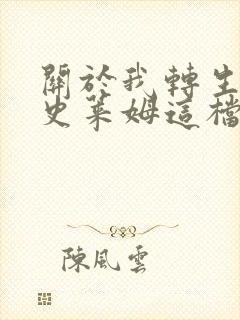 關於我轉生
史萊姆這檔
陳風雲